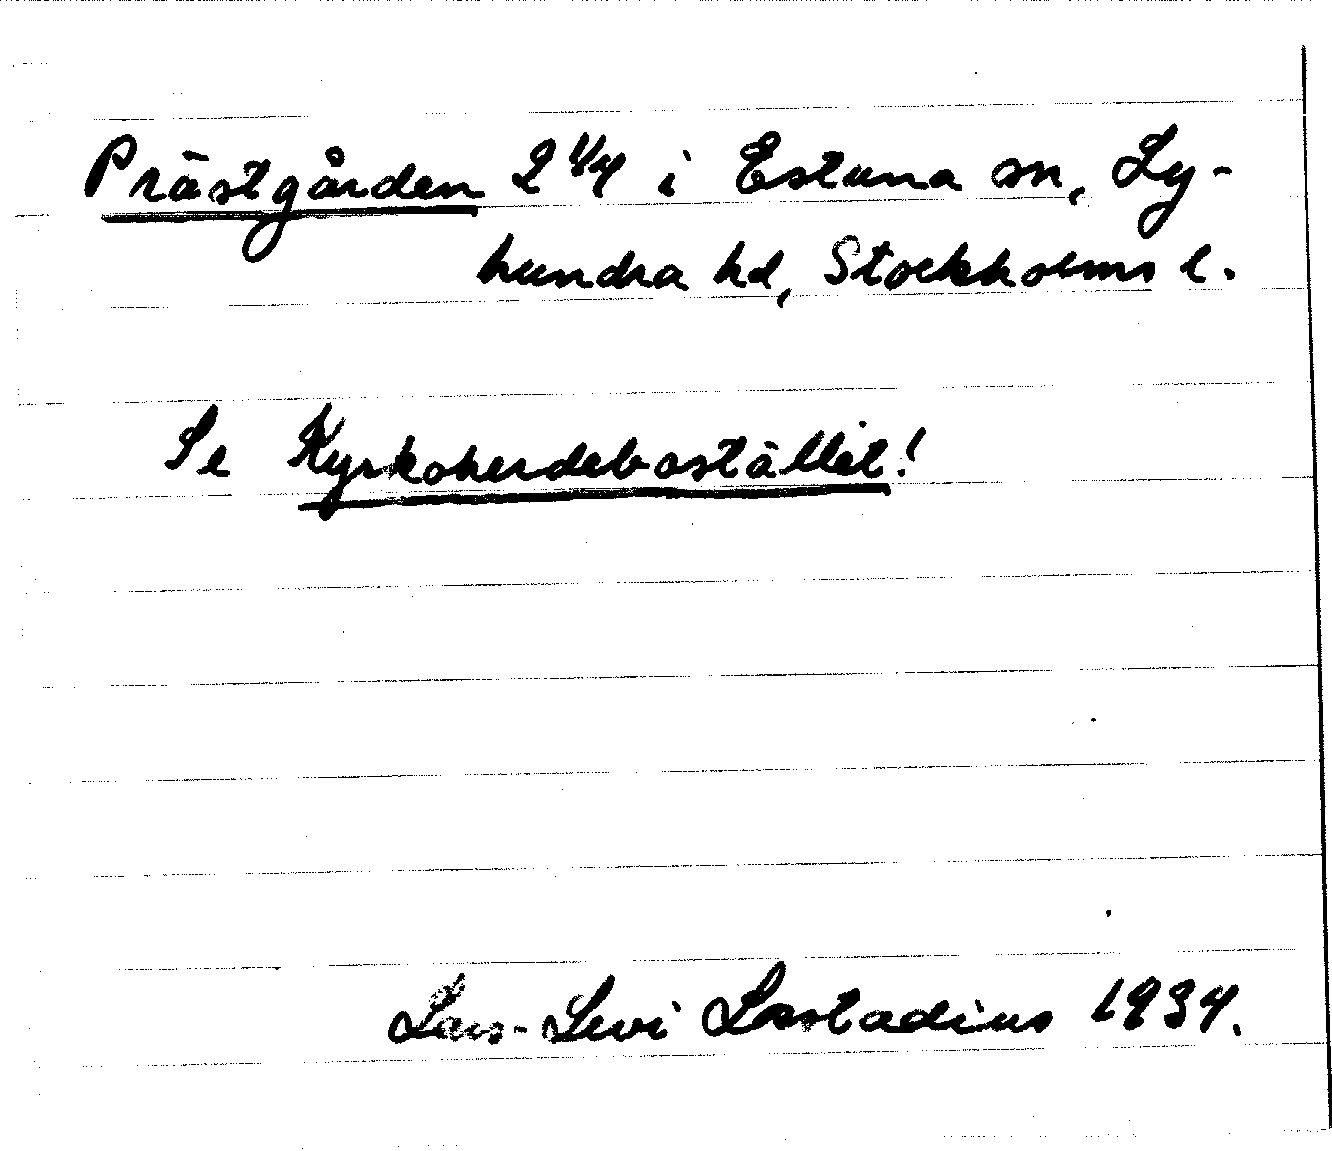 Prästgården 2 1/4 i Estuna sn, Ly-
hundra hd, Stockholms l.
Se Kyrkoherdebostället!
Lars-Levi Læstadius 1934.